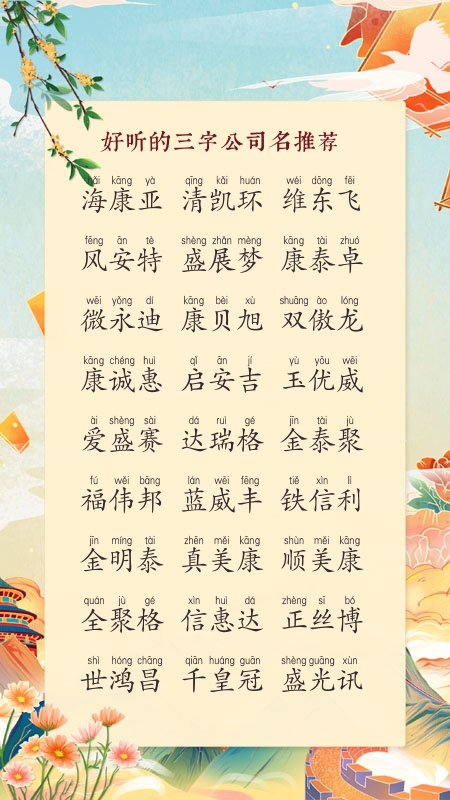 好听的三字公司名推荐
hǎi kāng yà qīng kǎi huán wéi dōng fēi
海康亚 清凯环 维东飞
fēng ān tè shèng zhǎn mèng kāng tài zhuó
风安特 盛展梦 康泰卓
wēi yǒng dí kāng bèi xù shuāng ào lóng
微永迪 康贝旭 双傲龙
kāng chéng huì qǐ ān jí yù yōu wēi
康诚惠 启安吉 玉优威
ài shèng sài dá ruì gé jīn tài jù
爱盛赛 达瑞格 金泰聚
fú wěi bāng lán wēi fēng tiě xìn lì
福伟邦 蓝威丰 铁信利
jīn míng tài zhēn měi kāng shùn měi kāng
金明泰 真美康 顺美康
quán jù gé xìn huì dá zhèng sī bó
全聚格 信惠达 正丝博
shì hóng chāng qiān huáng guān shèng guāng xùn
世鸿昌 千皇冠 盛光讯